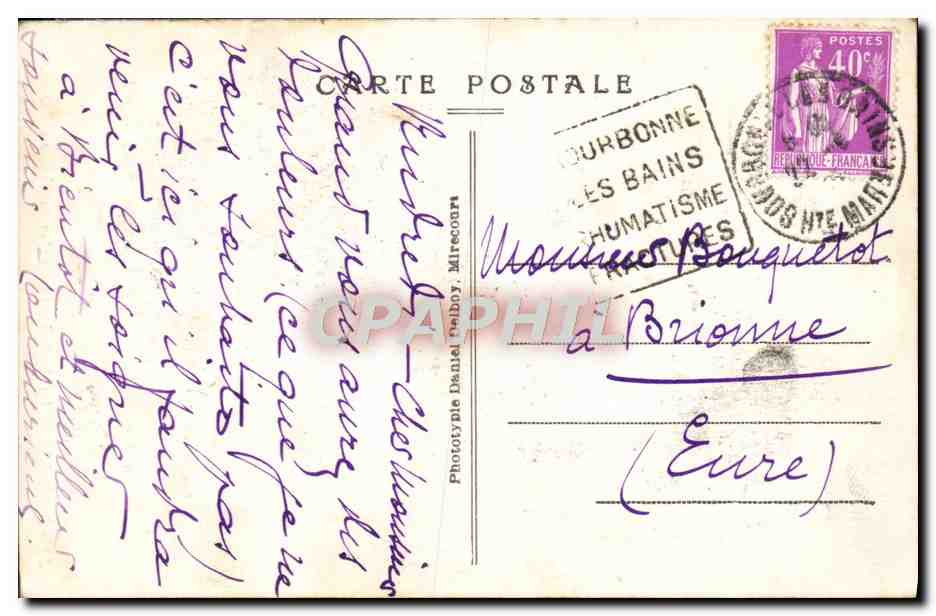 CARTE POSTALE
POSTES
40c
REPUBLIQUE-FRANÇAISE
OURBONNE
LES BAINS
HUMATISME
FRACTURES
HTE MARNE
Monsieur Bouquetot
à Brionne
(Eure)
Phototypie Daniel Delboy, Mirecourt
CPAPHIL
Cher Monsieur
Quand vous aurez des
douleurs (ce que je ne
vous souhaite pas)
c'est ici qu'il faudra
venir les soigner
à Bientôt et meilleur
souvenir